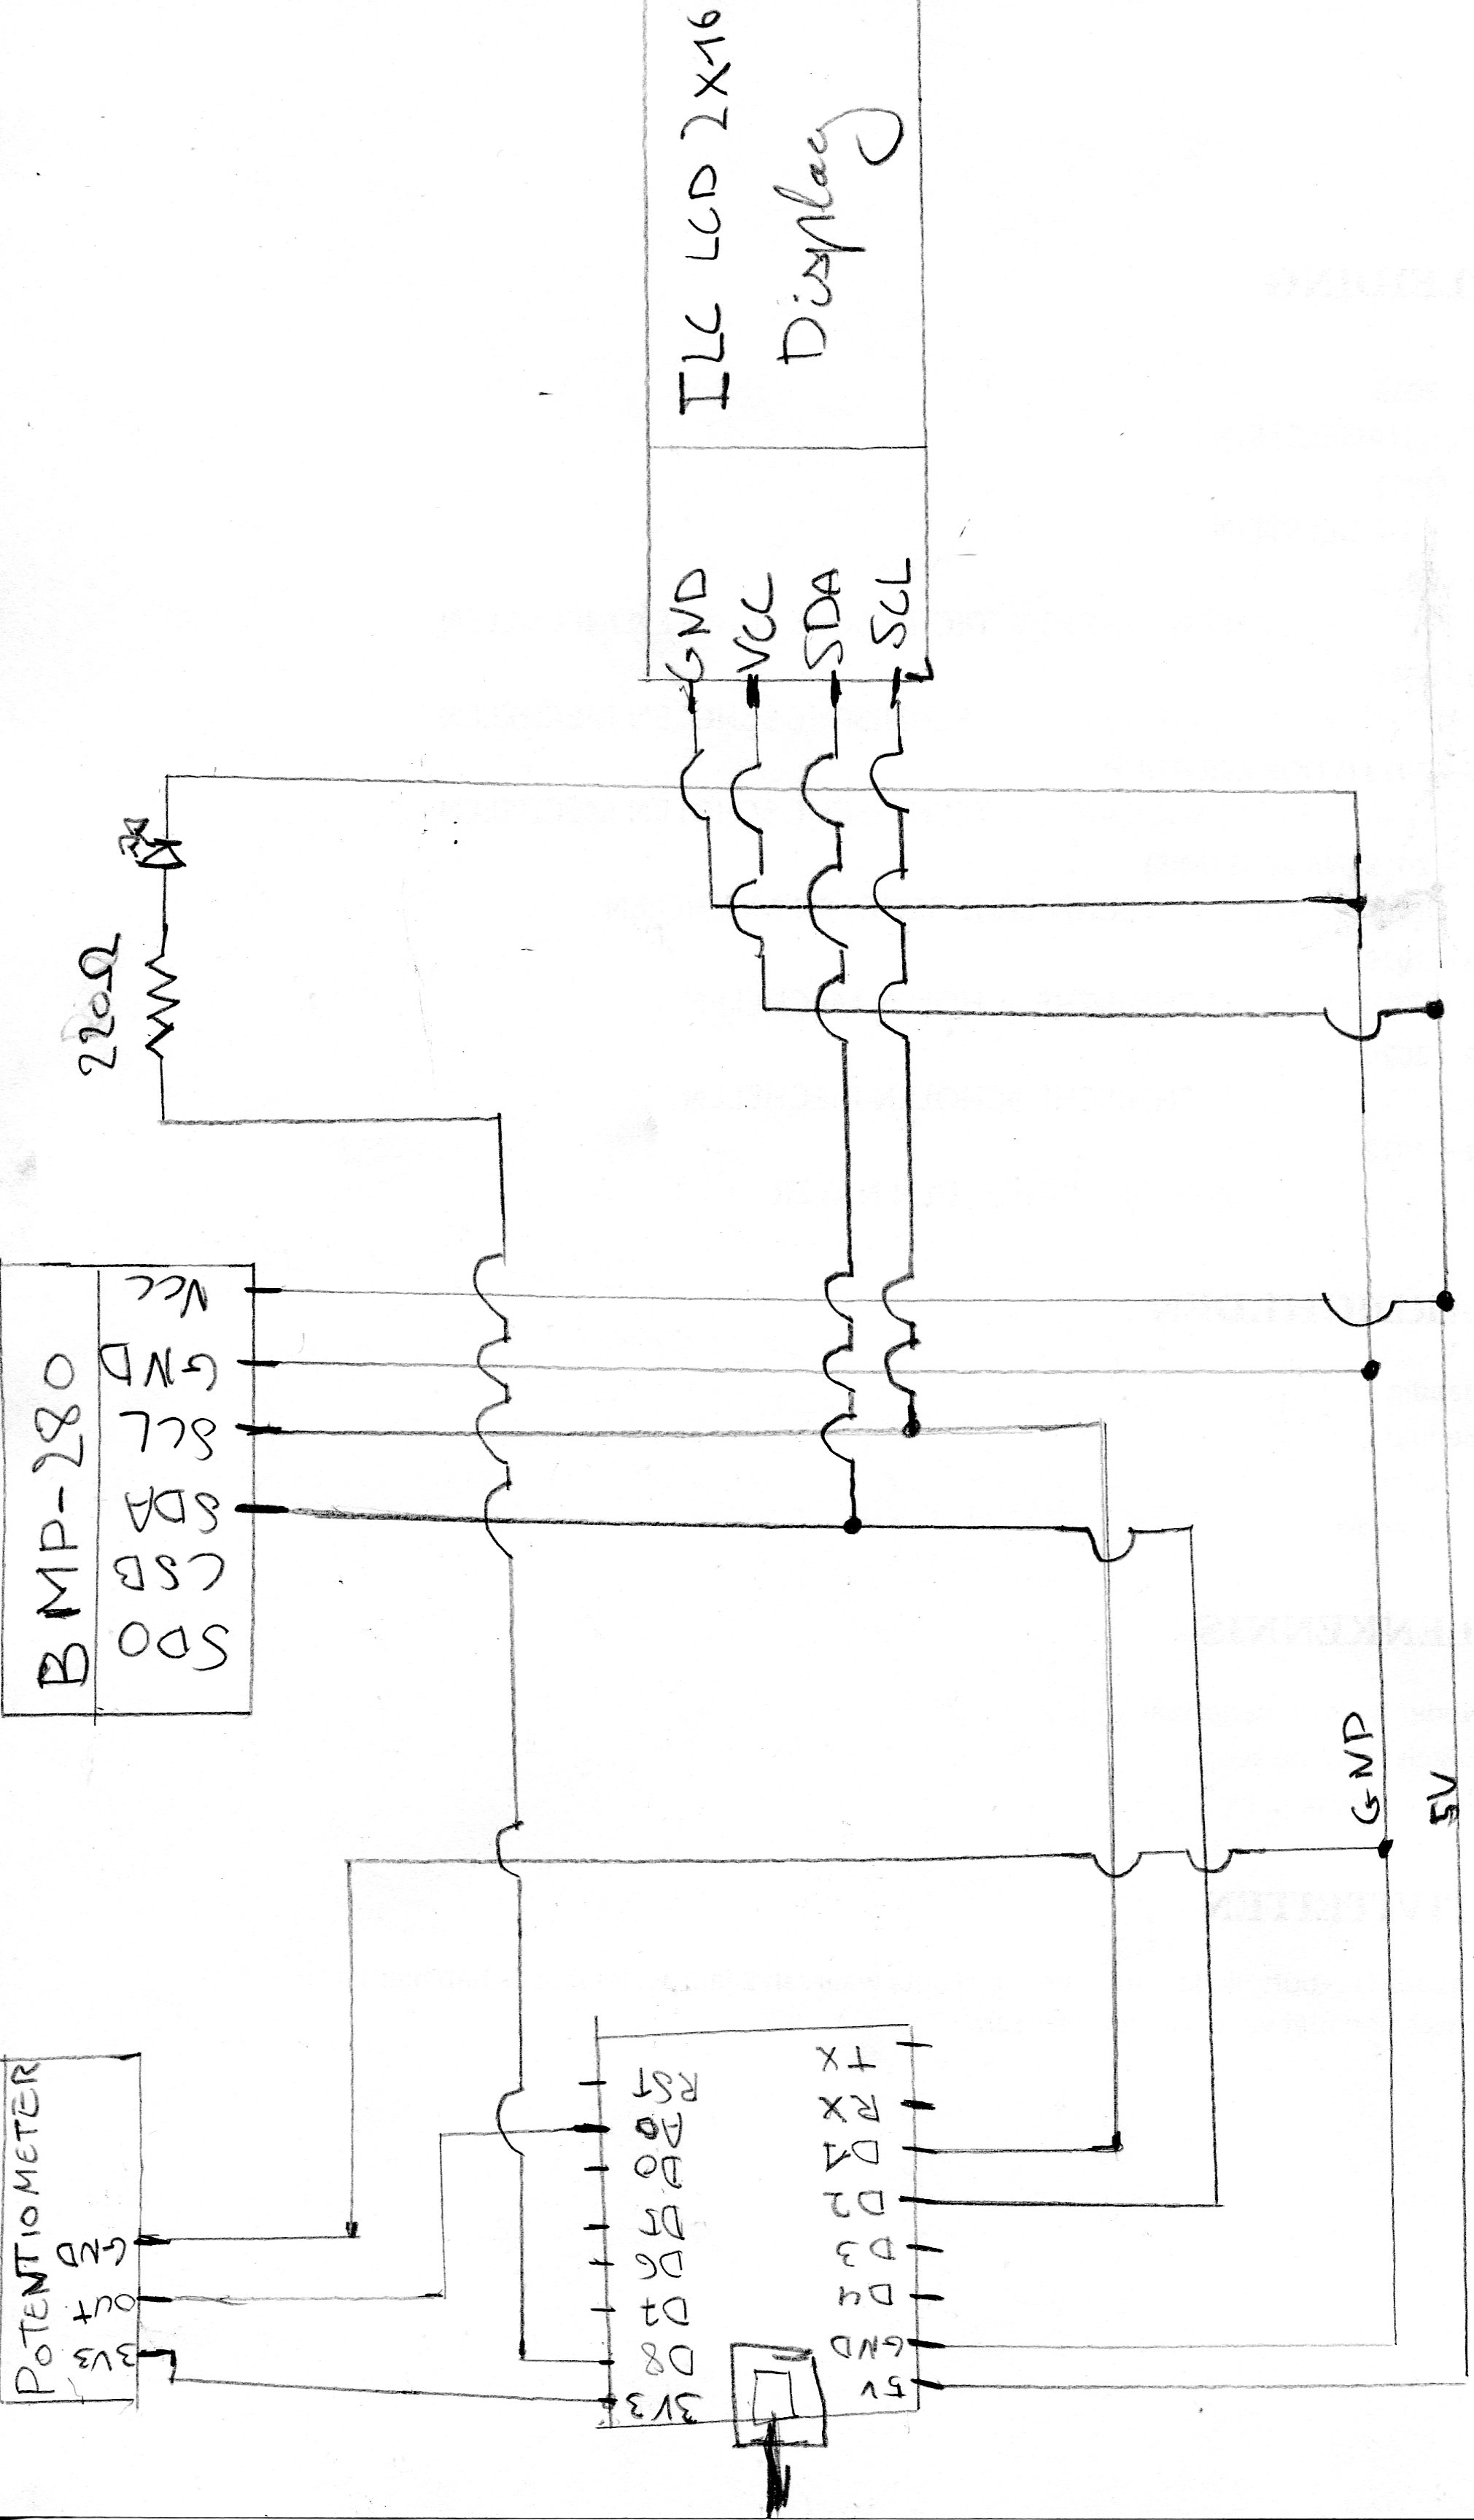 POTENTIOMETER
3V3
OUT
GND
BMP-280
SDO
CSB
SDA
SCL
GND
VCC
220Ω
3V3
D8
D7
D6
D5
D0
A0
RST
5V
GND
D4
D3
D2
D1
RX
TX
GND
VCC
SDA
SCL
ILC LCD 2X16
Display
GND
5V